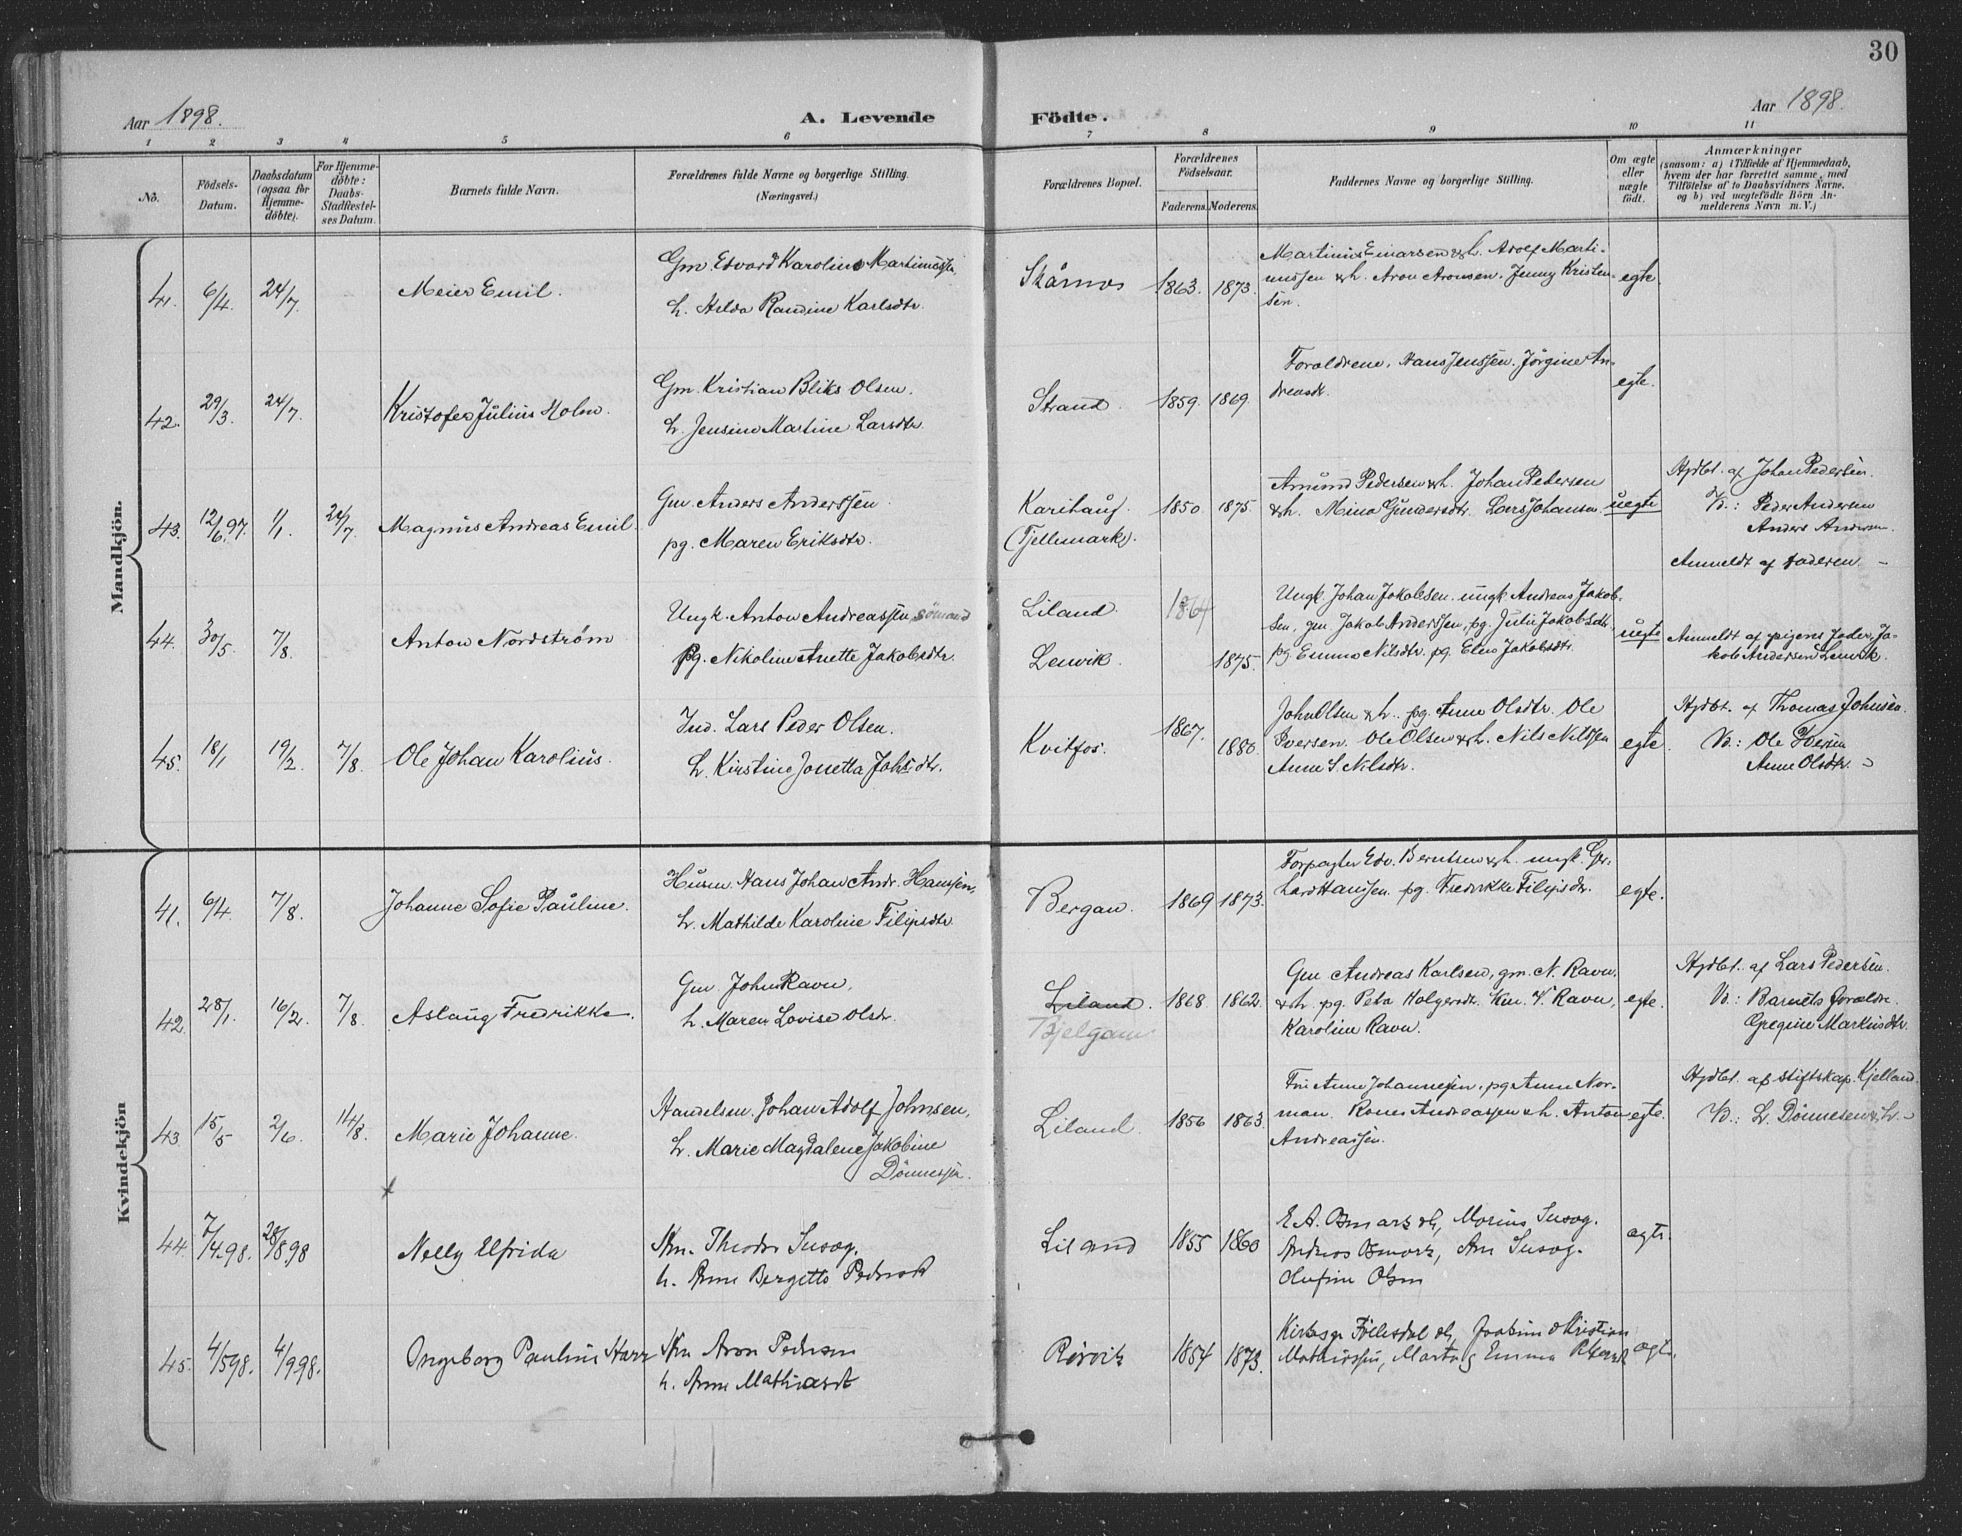 30
Aar 1898.
A. Levende
Födte.
Aar 1898.
1 2 3 4 5 6 7 8 9 10 11
No.
Födsels-
Datum.
Daabsdatum
(ogsaa for
Hjemme-
döbte).
For Hjemme-
döbte:
Daabs-
Stadfæstel-
ses Datum.
Barnets fulde Navn.
Forældrenes fulde Navne og borgerlige Stilling.
(Næringsvei.)
Forældrenes Bopæl.
Forældrenes
Födselsaar.
Faderens. Moderens.
Faddernes Navne og borgerlige Stilling.
Om ægte
eller
uægte
födt.
Anmærkninger
(saasom: a) i Tilfælde af Hjemmedaab,
hvem der har forrettet samme, med
Tilföielse af to Daabsvidners Navne,
og b) ved uægtefödte Börn An-
melderens Navn m. V.)
Mandkjön.
41. 6/4. 24/7. Meier Emil.
Gm. Edvard Karolius Martinussen,
h. Hilda Randine Karlsdtr.
Skånnes 1863. 1873.
Martinus Einarsen & h. Adolf Marti-
nussen & h. Aron Aronsen. Jenny Kristen-
sen.
egte.
42. 29/3. 24/7. Kristofer Julius Holm.
Gm. Kristian Bliks Olsen.
h. Jensine Martine Larsdtr.
Strand. 1859. 1869.
Foraldrene. Hans Jenssen. Jørgine An-
dreasdtr.
egte.
43. 12/6.97. 1/1. 24/7. Magnus Andreas Emil.
Gm Anders Anderssen.
pg. Maren Eriksdtr.
Karihaug.
(Tjellemark).
1850. 1875.
Amund Pedersen & h. Johan Pedersen
& h. Mina Gundersdtr. Lars Johansen.
uegte
Hjdbt. af Johan Pedersen.
V.: Peder Andersen
Anders Andersen.
Anmeldt af faderen.
44. 30/5. 7/8. Anton Nordstrøm
Ungk. Anton Andreassen, sømand
pg. Nikoline Anette Jakobsdtr.
Liland. 1864
Lenvik. 1875.
Ungk Johan Jakobsen. ungk Andreas Jakob-
sen, gm Jakob Anderssen, pg. Julie Jakobsdtr.
pg. Emma Nilsdtr. pg. Elen Jakobsdtr.
uegte
Anmeldt af pigens fader, Ja-
kob Andersen Lenvik.
45. 18/1. 19/2. 7/8. Ole Johan Karolius.
Ind. Lars Peder Olsen.
h. Kirstine Josetta Johsdtr.
Kvitfos. 1867. 1880.
John Olsen & h. pg. Anne Olsdtr. Ole
Iversen. Ole Olsen & h. Nils Nilssen
Anne S. Nilsdtr.
egte.
Hjdbt. af Thomas Johnsen.
V.: Ole Iversen
Anne Olsdtr.
Kvindekjön
41. 6/4. 7/8. Johanne Sofie Pauline.
Husm. Hans Johan Andr. Hanssen,
h. Mathilde Karoline Filipsdtr.
Bergan. 1869 1873.
Forpagter Edv. Berntsen & h. ungk. Ger-
hard Hanssen. pg. Fredrikke Filipsdtr.
egte.
42. 28/1. 16/2. 7/8. Aslaug Fredrikke.
Gm John Ravn,
h. Maren Lovise Olsdtr.
Liland.
Tjelgam
1868. 1862.
Gm Andreas Karlsen, gm. N. Ravn.
& h. pg. Peta Holgersdtr. Km. V. Ravn,
Karoline Ravn.
egte.
Hjdbt. af Lars Pedersen.
V.: Barnets forældre.
Gregine Markusdtr.
43. 15/5. 2/6. 14/8. Marie Johanne.
Handelsm. Johan Adolf Johnsen,
h. Marie Magdalene Jakobine
Dønnessen.
Liland. 1856 1863.
Fru Anne Johannessen. pg Anne Nor-
man. Rones Andreassen & h. Anton
Andreassen.
egte.
Hjdbt. af stiftskap. Kjelland.
V.: L. Dønnesen & h.
44. 7/4.98. 28/8.98 Nelly Elfrida
Km. Theodor Susæg.
h. Anne Bergitte Pedersdt
Liland 1855 1860
E. A. Osmark & h, Marius Susæg.
Andreas Osmark, Ane Susæg.
Olufine Olsen
ægte.
45. 4/5 98. 4/9.98. Ingeborg Pauline Harr
Km Aron Pedersen
h. Anne Mathiasdt
Rørvik 1854 1873.
Kirkesgr Føllesdal & h, Joakim & Kristian
Mathiassen, Marta & Emma
ægte.